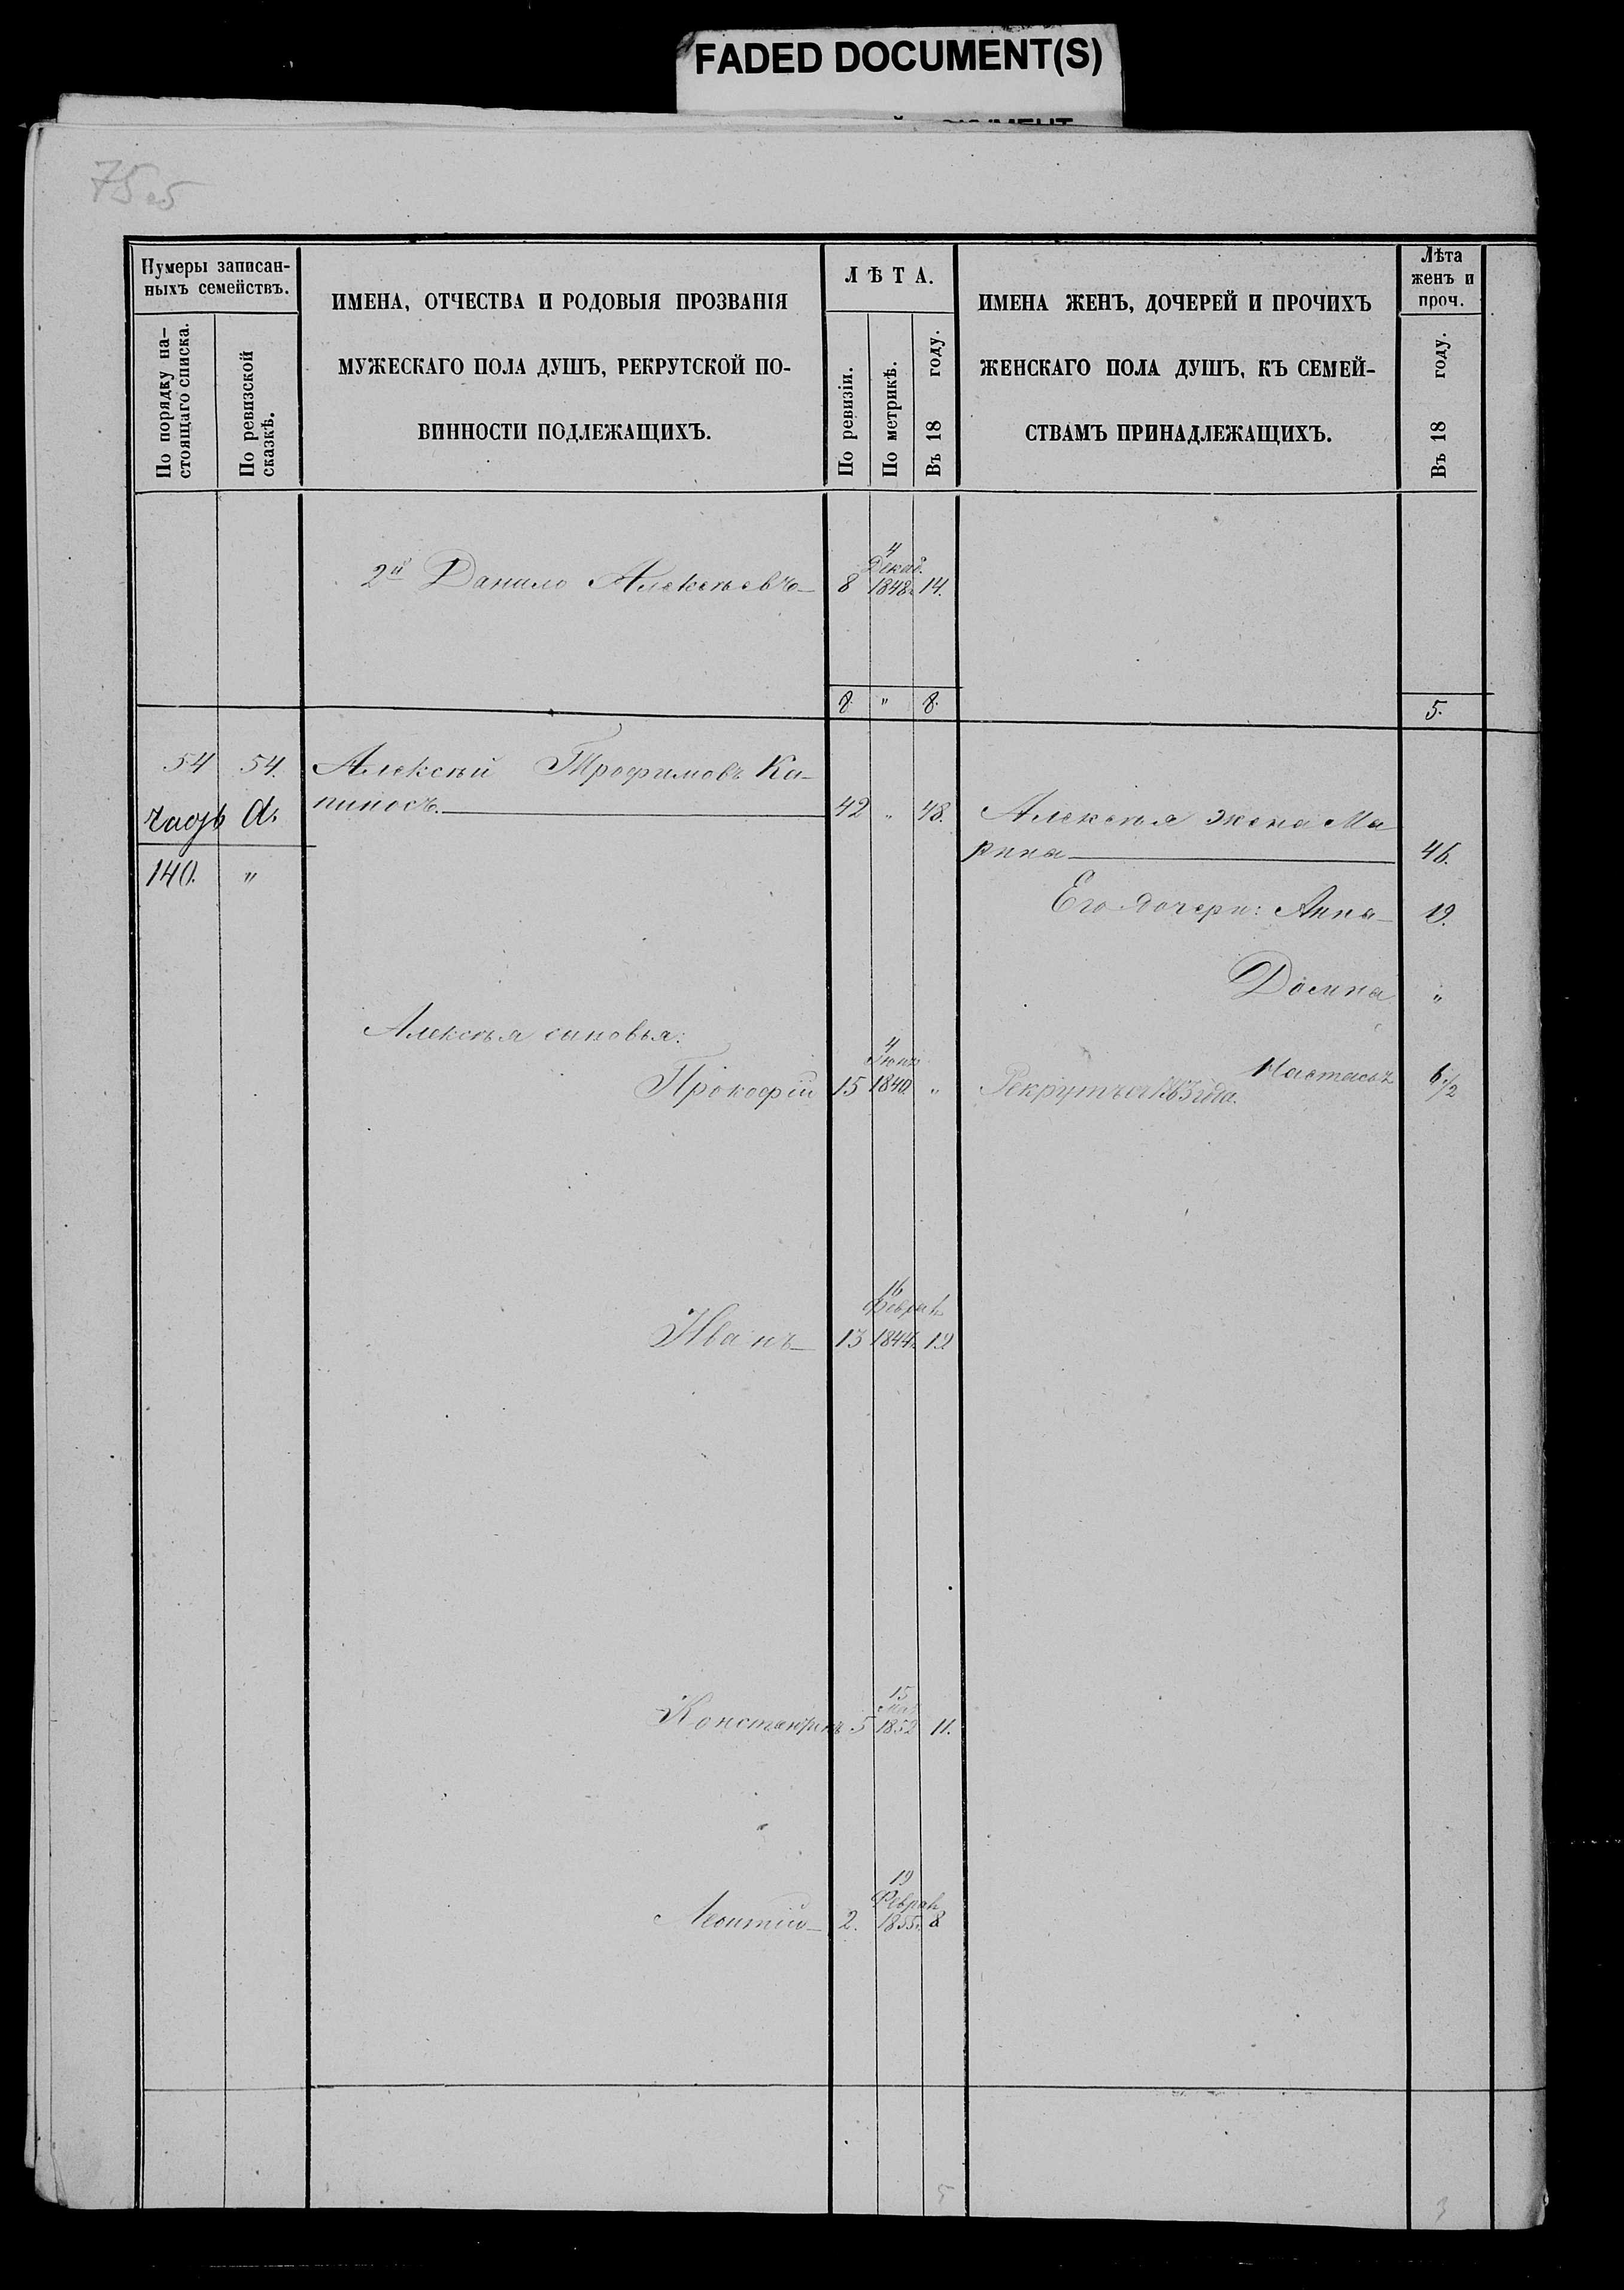 FADED DOCUMENT(S)
75об
Нумеры записан-
ныхъ семействъ.
По порядку на-
стоящаго списка.
По ревизской
сказкѣ.
ИМЕНА, ОТЧЕСТВА И РОДОВЫЯ ПРОЗВАНІЯ
МУЖЕСКАГО ПОЛА ДУШЪ, РЕКРУТСКОЙ ПО-
ВИННОСТИ ПОДЛЕЖАЩИХЪ.
ЛѢТА.
По ревизіи.
По метрикѣ.
Въ 18 году.
ИМЕНА ЖЕНЪ, ДОЧЕРЕЙ И ПРОЧИХЪ
ЖЕНСКАГО ПОЛА ДУШЪ, КЪ СЕМЕЙ-
СТВАМЪ ПРИНАДЛЕЖАЩИХЪ.
Лѣта
женъ и
проч.
Въ 18 году.
4
Декаб.
2й Данило Алексѣевъ 8 1848 14.
8. " 8. 5.
54 54. Алексѣй Трофимовъ Ка-
пиносъ. 42 " 48. Алексѣя жена Ма
рина 46.
140. "
Его дочери: Анна 19.
Домна "
Алексѣя сыновья:
4
Іюня
Настасья 6 1/2
Прокофій 15 1840 " Рекрутъ 1863 года.
16
Февраля
Иванъ 13 1844 19
15
Мая
Константинъ 5 1852 11.
19
Февраля
Леонтій 2. 1855 8
5 3